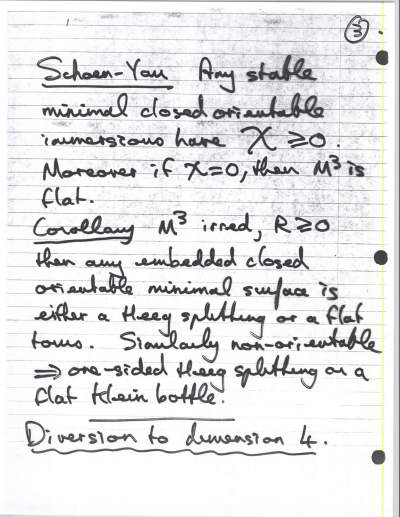 3/3.
Schoen-Yau Any stable
minimal closed orientable
immersions have χ ≥ 0.
Moreover if χ=0, then M³ is
flat.
Corollary M³ irred, R≥0
then any embedded closed
orientable minimal surface is
either a Heeg splitting or a flat
torus. Similarly non-orientable
⇒ one-sided Heeg splitting or a
flat Klein bottle.
Diversion to dimension 4.